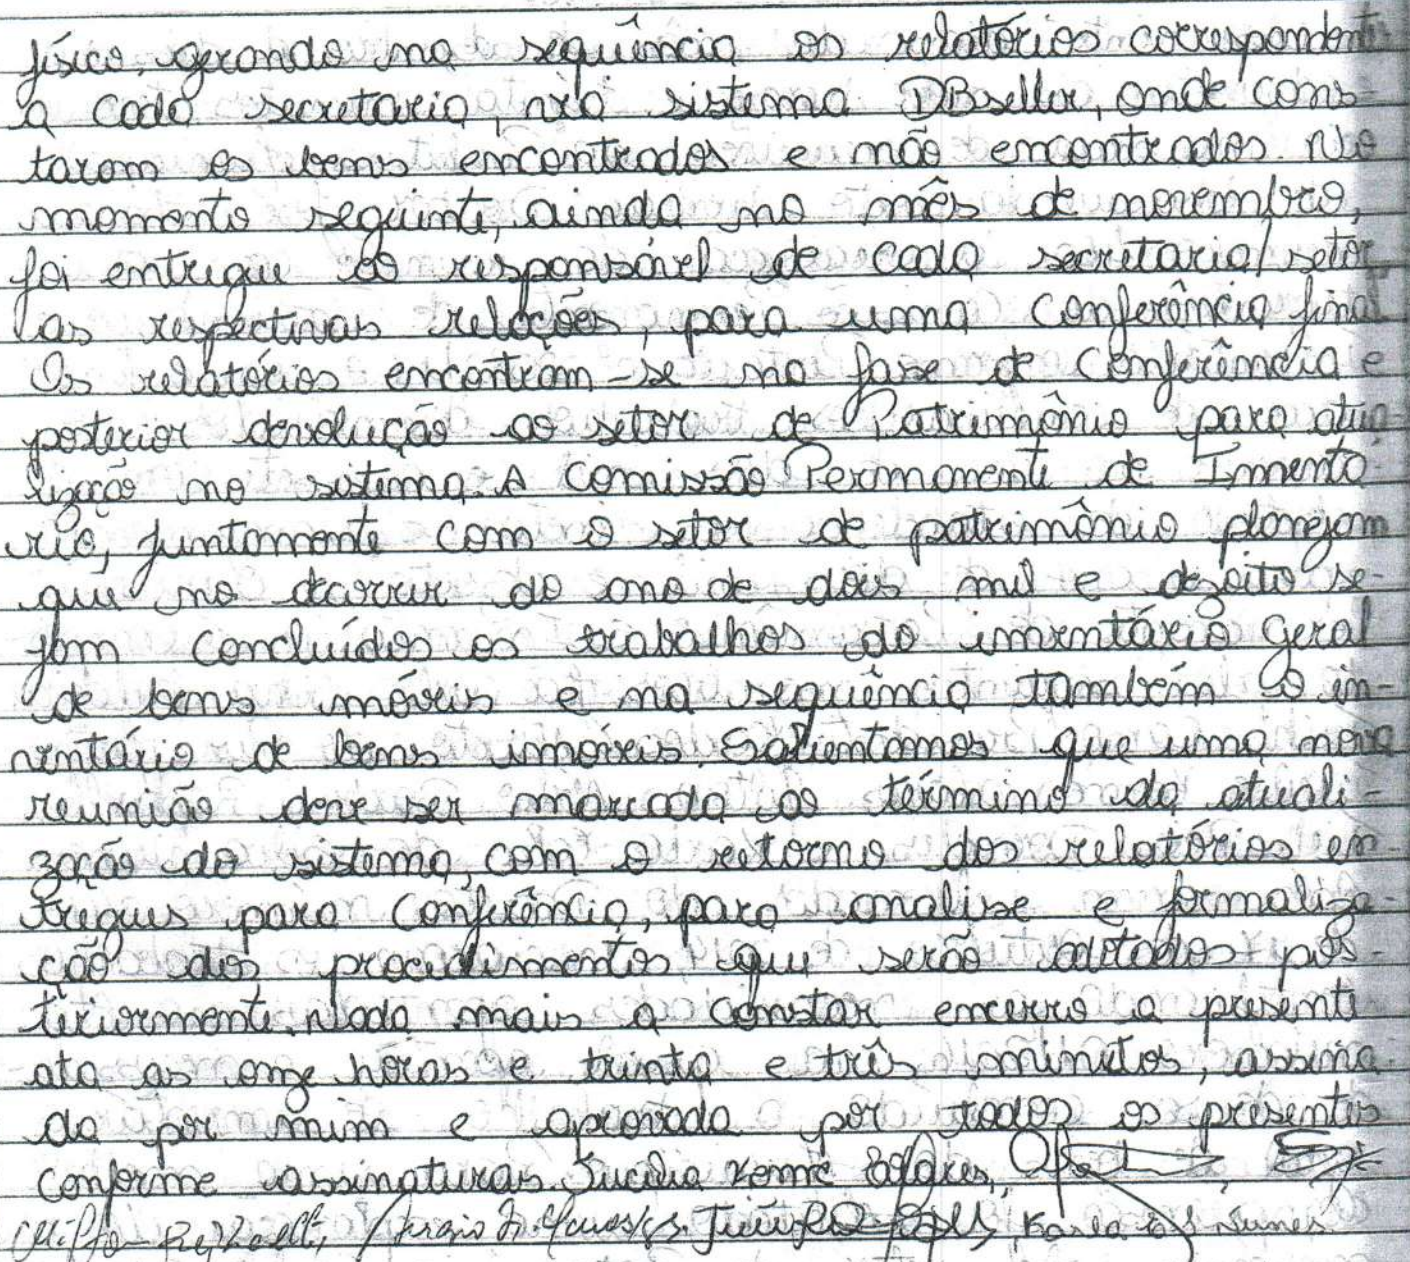 físico, gerando na sequência os relatórios correspondent
a cada secretaria, via sistema DBseller, onde cons-
taram os bens encontrados e não encontrados. No
momento seguinte, ainda no mês de novembro,
foi entregue ao responsável de cada secretaria/setor,
as respectivas relações, para uma conferência final
Os relatórios encontram-se na fase de conferência e
posterior devolução ao setor de Patrimônio para atua-
lização no sistema. A Comissão Permanente de Inventá-
rio, juntamente com o setor de patrimônio planejam
que no decorrer do ano de dois mil e dezoito se-
jam concluídos os trabalhos do inventário geral
de bens móveis e na sequência também o in-
ventário de bens imóveis. Salientamos que uma nova
reunião deve ser marcada ao término da atuali-
zação do sistema, com o retorno dos relatórios en-
tregues para conferência, para analise e formaliza-
ção dos procedimentos que serão adotados pos-
teriormente. Nada mais a constar encerro a presente
ata as onze horas e trinta e três minutos, assina-
da por mim e aprovada por todos os presentes
conforme assinaturas.
Nunes